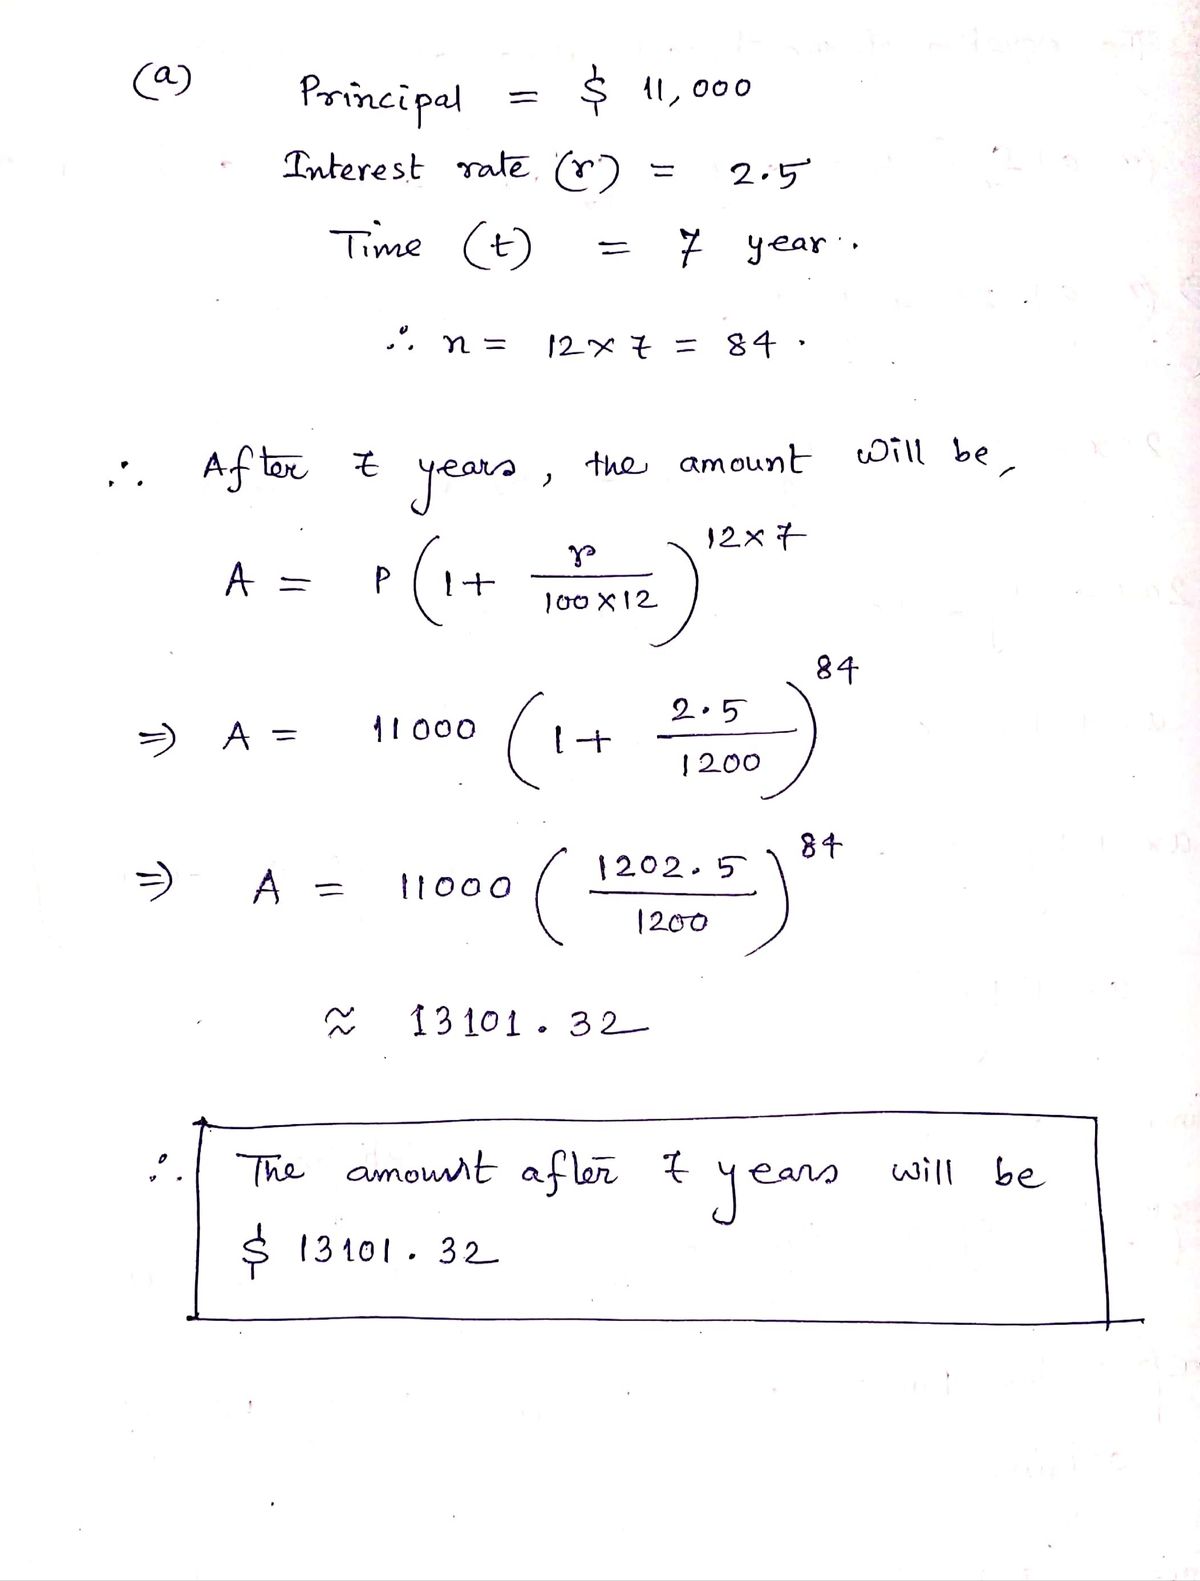 (a) Principal = $ 11,000
Interest rate (r) = 2.5
Time (t) = 7 year.
∴ n = 12 × 7 = 84.
∴ After 7 years, the amount will be,
A = P (1 + r / 100 × 12)^12 × 7
⇒ A = 11000 (1 + 2.5 / 1200)^84
⇒ A = 11000 (1202.5 / 1200)^84
≈ 13101.32
∴ The amount after 7 years will be
$ 13101.32